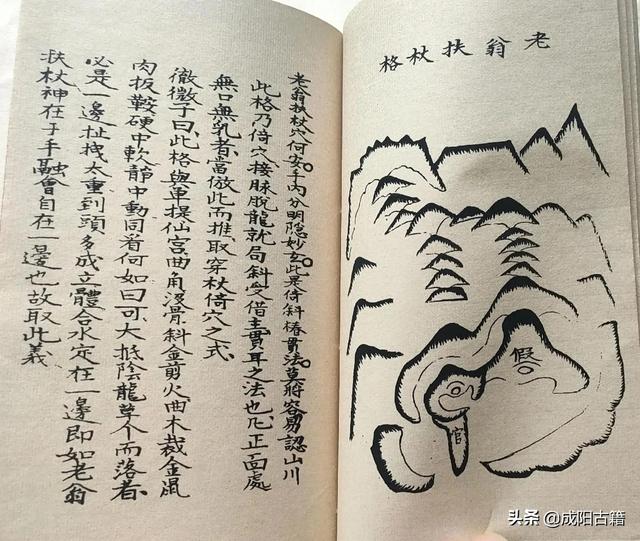 老翁扶杖格
假
官
老翁扶杖穴何安。手内分明隐妙玄。此是倚斜椿貫法。莫將容易認山川
此格乃倚穴接脉脫龍就局斜受借主貫耳之法也凡正面處
無口無乳者當倣此而推取穿杖倚穴之式
徹徹子曰此格與單提仙宫曲角沒骨斜金剪火曲木裁金鼠
肉板鞍硬中軟靜中動同看何如曰可大抵陰龍單个而落者
必是一邊扯拽太重到頭多成立體合水定在一邊即如老翁
扶杖神在于手融會自在一邊也故取此義
头条 @成阳古籍